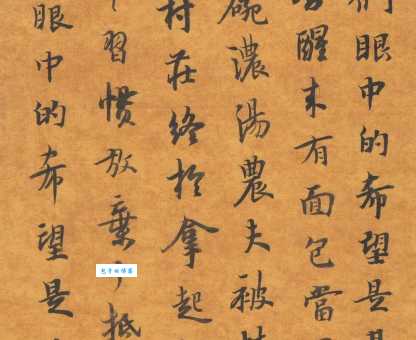 們眼中的希望是
醒來有面包當
碗濃湯農夫被
村莊終於拿起
習慣放棄了抵
眼中的希望是